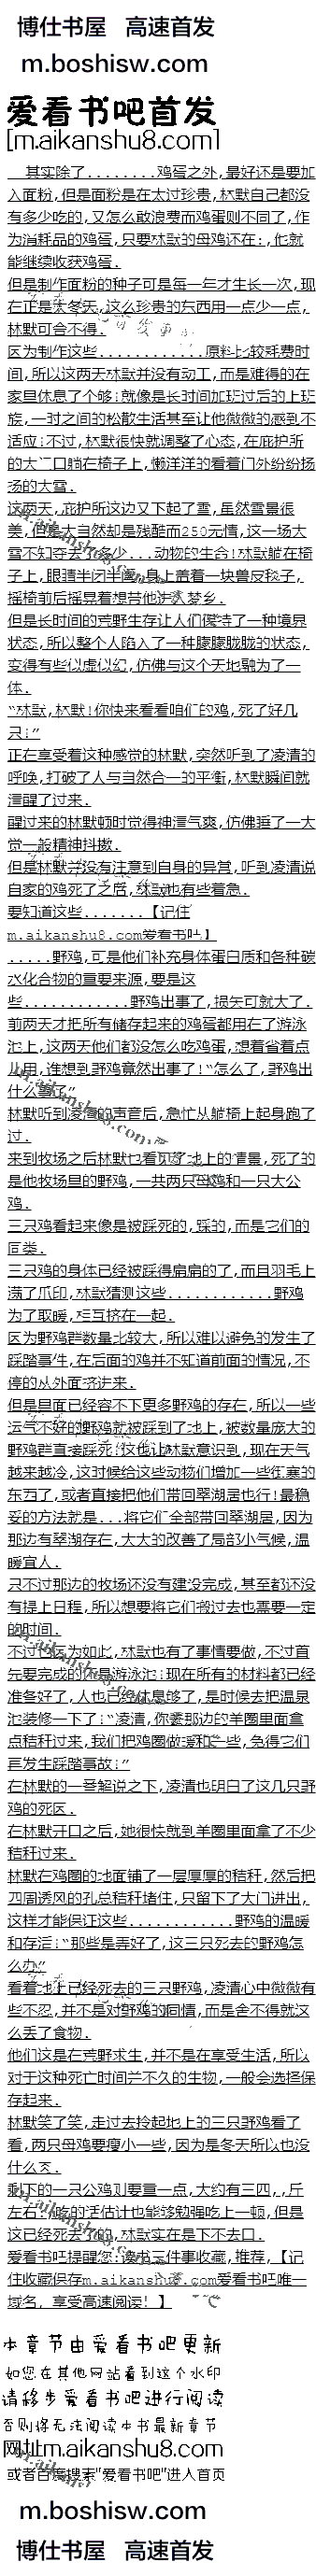 博仕书屋 高速首发
m.boshisw.com
爱看书吧首发
[m.aikanshu8.com]
其实除了........鸡蛋之外,最好还是要加
入面粉,但是面粉是在太过珍贵,林默自己都没
有多少吃的,又怎么敢浪费而鸡蛋则不同了,作
为消耗品的鸡蛋,只要林默的母鸡还在:,他就
能继续收获鸡蛋.
但是制作面粉的种子可是每一年才生长一次,现
在正是大冬天,这么珍贵的东西用一点少一点,
林默可舍不得.
因为制作这些............原料比较耗费时
间,所以这两天林默并没有动工,而是难得的在
家里休息了个够!就像是长时间加班过后的上班
族,一时之间的松散生活甚至让他微微的感到不
适应!不过,林默很快就调整了心态,在庇护所
的大门口躺在椅子上,懒洋洋的看着门外纷纷扬
扬的大雪.
这两天,庇护所这边又下起了雪,虽然雪景很
美,但是大自然却是残酷而250无情,这一场大
雪不知夺去了多少...动物的生命!林默躺在椅
子上,眼睛半闭半阖,身上盖着一块兽皮毯子,
摇椅前后摇晃着想带他进入梦乡.
但是长时间的荒野生存让人们保持了一种境界
状态,所以整个人陷入了一种朦朦胧胧的状态,
变得有些似虚似幻,仿佛与这个天地融为了一
体.
“林默,林默!你快来看看咱们的鸡,死了好几
只!”
正在享受着这种感觉的林默,突然听到了凌清的
呼唤,打破了人与自然合一的平衡,林默瞬间就
清醒了过来.
醒过来的林默顿时觉得神清气爽,仿佛睡了一大
觉一般精神抖擞.
但是林默并没有注意到自身的异常,听到凌清说
自家的鸡死了之后,林默也有些着急.
要知道这些.......【记住
m.aikanshu8.com爱看书吧】
.....野鸡,可是他们补充身体蛋白质和各种碳
水化合物的重要来源,要是这
些............野鸡出事了,损失可就大了.
前两天才把所有储存起来的鸡蛋都用在了游泳
池上,这两天他们都没怎么吃鸡蛋,想着省着点
儿用,谁想到野鸡竟然出事了!“怎么了,野鸡出
什么事了”
林默听到凌清的声音后,急忙从躺椅上起身跑了
过.
来到牧场之后林默也看见了地上的情景,死了的
是他牧场里的野鸡,一共两只母鸡和一只大公
鸡.
三只鸡看起来像是被踩死的,踩的,而是它们的
同类.
三只鸡的身体已经被踩得扁扁的了,而且羽毛上
满了爪印,林默猜测这些............野鸡
为了取暖,相互挤在一起.
因为野鸡群数量比较大,所以难以避免的发生了
踩踏事件,在后面的鸡并不知道前面的情况,不
停的从外面挤进来.
但是里面已经容不下更多野鸡的存在,所以一些
运气不好的野鸡就被踩到了地上,被数量庞大的
野鸡群直接踩死!这也让林默意识到,现在天气
越来越冷,这时候给这些动物们增加一些御寒的
东西了,或者直接把他们带回翠湖居也行!最稳
妥的方法就是...将它们全部带回翠湖居,因为
那边有翠湖存在,大大的改善了局部小气候,温
暖宜人.
只不过那边的牧场还没有建设完成,甚至都还没
有提上日程,所以想要将它们搬过去也需要一定
的时间.
不过正因为如此,林默也有了事情要做,不过首
先要完成的还是游泳池!现在所有的材料都已经
准备好了,人也已经休息够了,是时候去把温泉
池装修一下了!“凌清,你去那边的羊圈里面拿
点秸秆过来,我们把鸡圈做暖和一些,免得它们
再发生踩踏事故!”
在林默的一番解说之下,凌清也明白了这几只野
鸡的死因.
在林默开口之后,她很快就到羊圈里面拿了不少
秸秆过来.
林默在鸡圈的地面铺了一层厚厚的秸秆,然后把
四周透风的孔总秸秆堵住,只留下了大门进出,
这样才能保证这些............野鸡的温暖
和存活!“那些是弄好了,这三只死去的野鸡怎
么办”
看着地上已经死去的三只野鸡,凌清心中微微有
些不忍,并不是对野鸡的同情,而是舍不得就这
么丢了食物.
他们这是在荒野求生,并不是在享受生活,所以
对于这种死亡时间并不久的生物,一般会选择保
存起来.
林默笑了笑,走过去拎起地上的三只野鸡看了
看,两只母鸡要瘦小一些,因为是冬天所以也没
什么肉.
剩下的一只公鸡则要重一点,大约有三四,,斤
左右!吃的话估计也能够勉强吃上一顿,但是
这已经死去了的,林默实在是下不去口.
爱看书吧提醒您:读书三件事收藏,推荐,【记
住收藏保存m.aikanshu8.com爱看书吧唯一
域名, 享受高速阅读! 】
本章节由爱看书吧更新
如您在其他网站看到这个水印
请移步爱看书吧进行阅读
否则将无法阅读本书最新章节
网址m.aikanshu8.com
或者百度搜索"爱看书吧"进入首页
m.boshisw.com
博仕书屋 高速首发